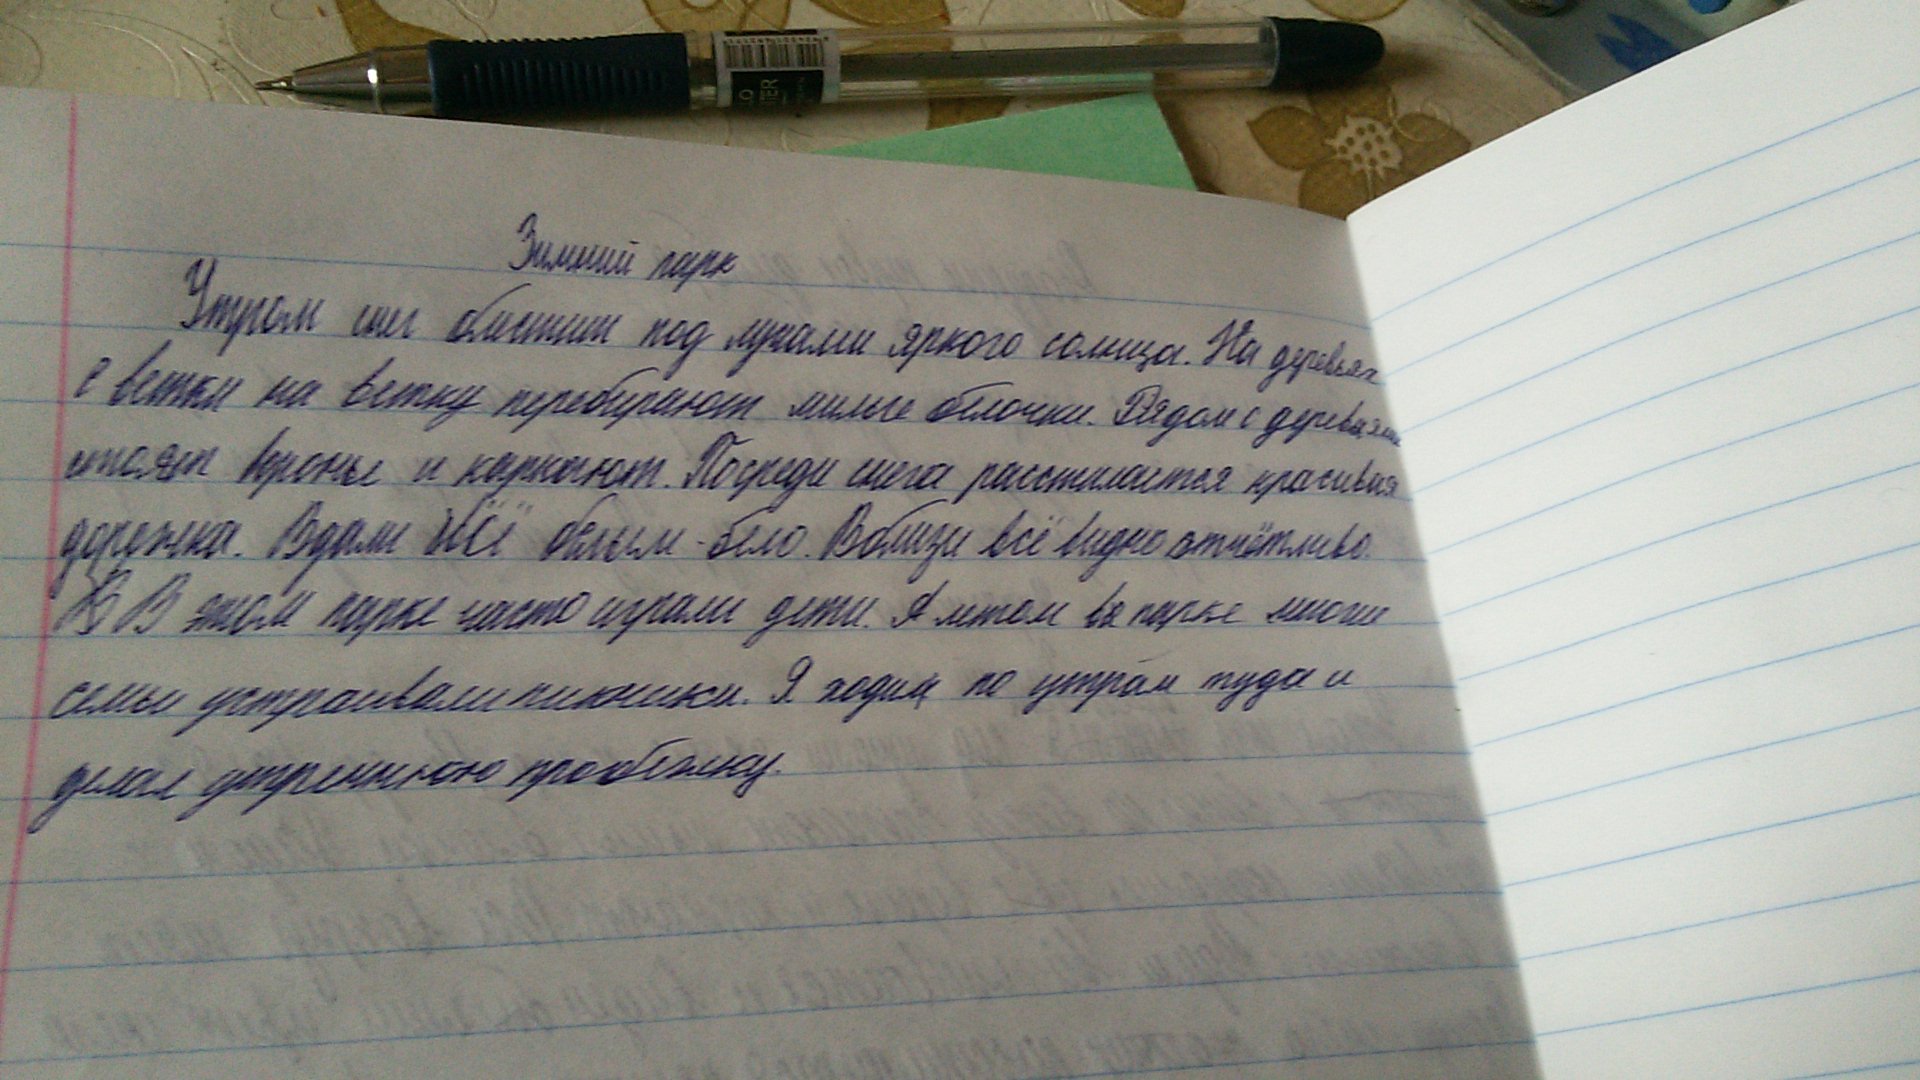 Зимний парк
Утром снег блестит под лучами яркого солнца. На деревьях
с ветки на ветку перебирают милые белочки. Рядом с деревьями
стоят вороны и каркают. Посреди снега расстилается красивая
дорожка. Вдали всё белым-бело. Вблизи всё видно отчётливо.
В этом парке часто играли дети. А летом в парке многие
семьи устраивали пикники. Я ходил по утрам туда и
делал утреннюю пробежку.